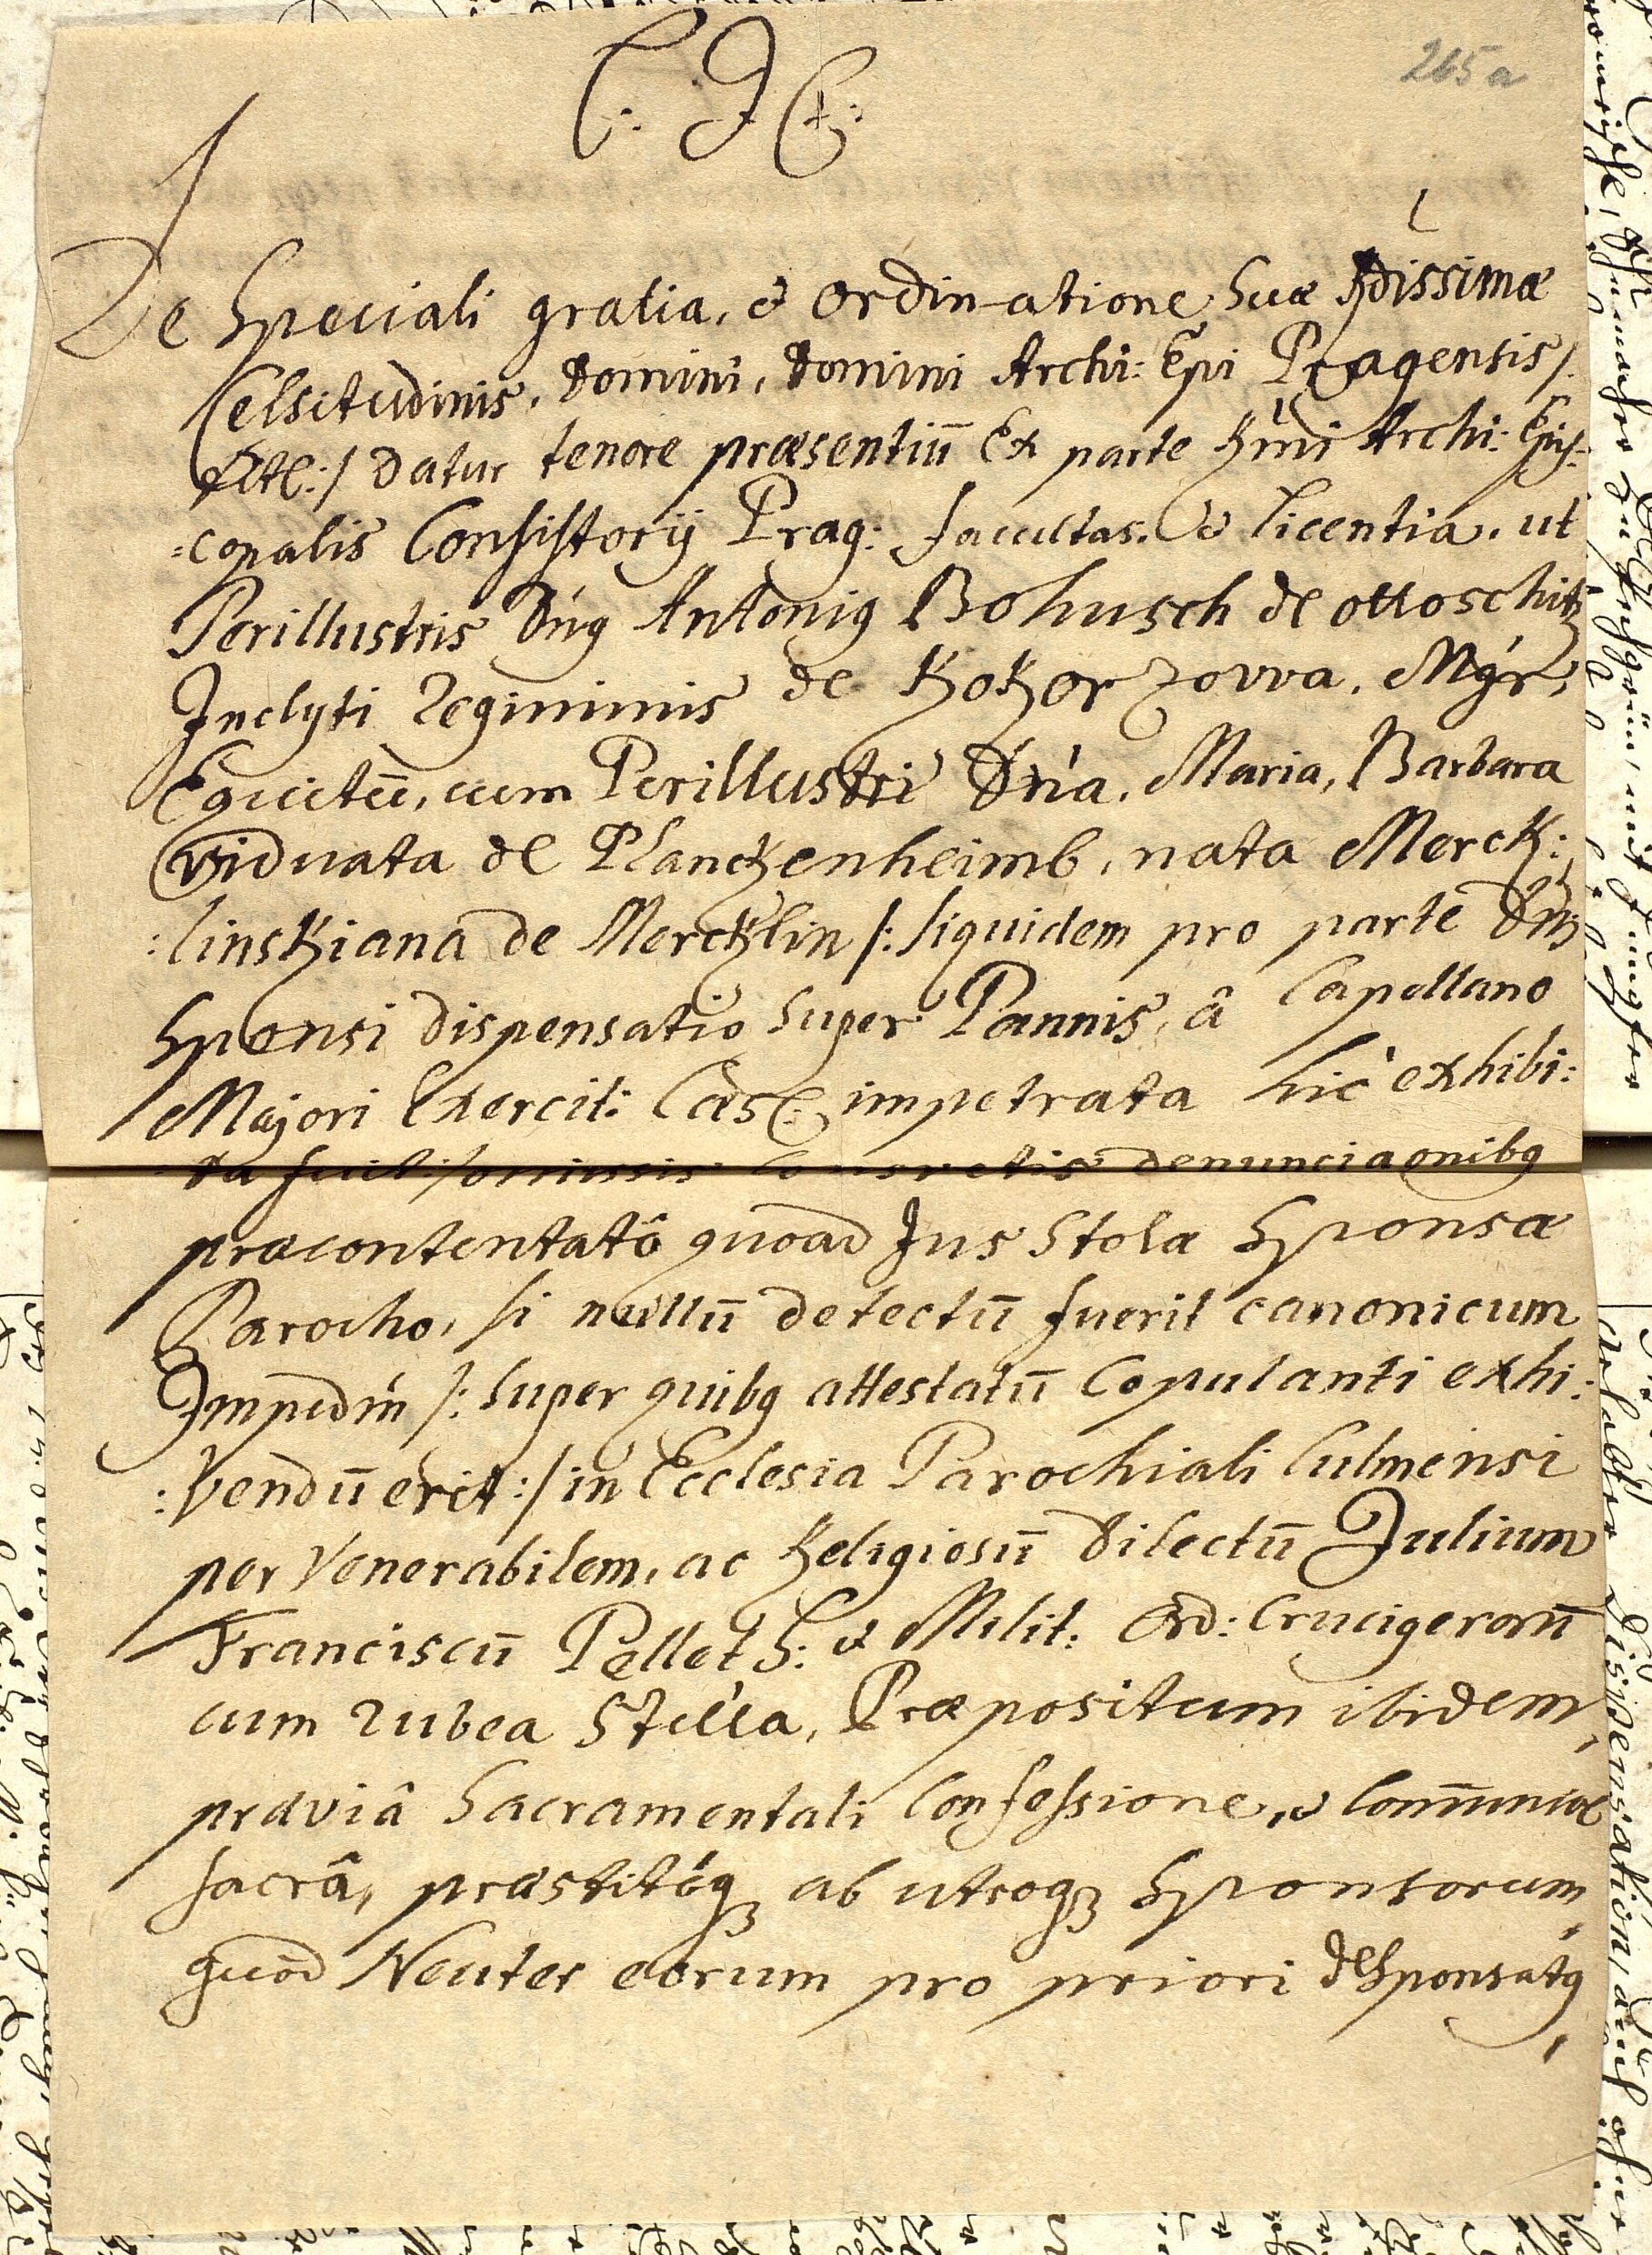 265 a
De Speciali gratia, & Ordinatione Suæ Rdissimæ
Celsitudinis, Domini, Domini Archi: Epi Pragensis /:
Etc:/ Datur tenore præsentiū Ex parte Rmi Archi: Epis=
=copalis Consistorij Prag: facultas. & licentia. ut
Perillustris Dn̄9 Antoni9 Bohusch de ottoschitz
Inclyti Regiminis de Kokorzowa. Mgr̄
Equitū, cum Perillustri Dn̄a. Maria, Barbara
viduata de Planckenheimb, nata Merck:
:linskiana de Mercklin /: siquidem pro parte Dn̄i
Sponsi dispensatio super Pannis, â Capellano
Majori Exercit: Cæs: impetrata hic exhibi:
ta fuit / omissis consvetis denunciaonib9
præcontentatô quoad Jus Stolæ Sponsæ
Parocho, si nullū detectū fuerit canonicum
Impedm̄ /: super quib9 attestatū Copulanti exhi:
:bendū erit :/ in Ecclesia Parochiali Culmensi
per Venerabilem, ac Religiosū Dilectū Julium
Franciscū Pellet S: & Milit: Ord: Crucigerorū
cum rubea Stella, Præpositum ibidem,
præviâ Sacramentali Confessione, & Com̄unioe
sacrâ, præstitóq3 ab utroq3 Sponsorum,
quod Neuter eorum pro priori desponsat9